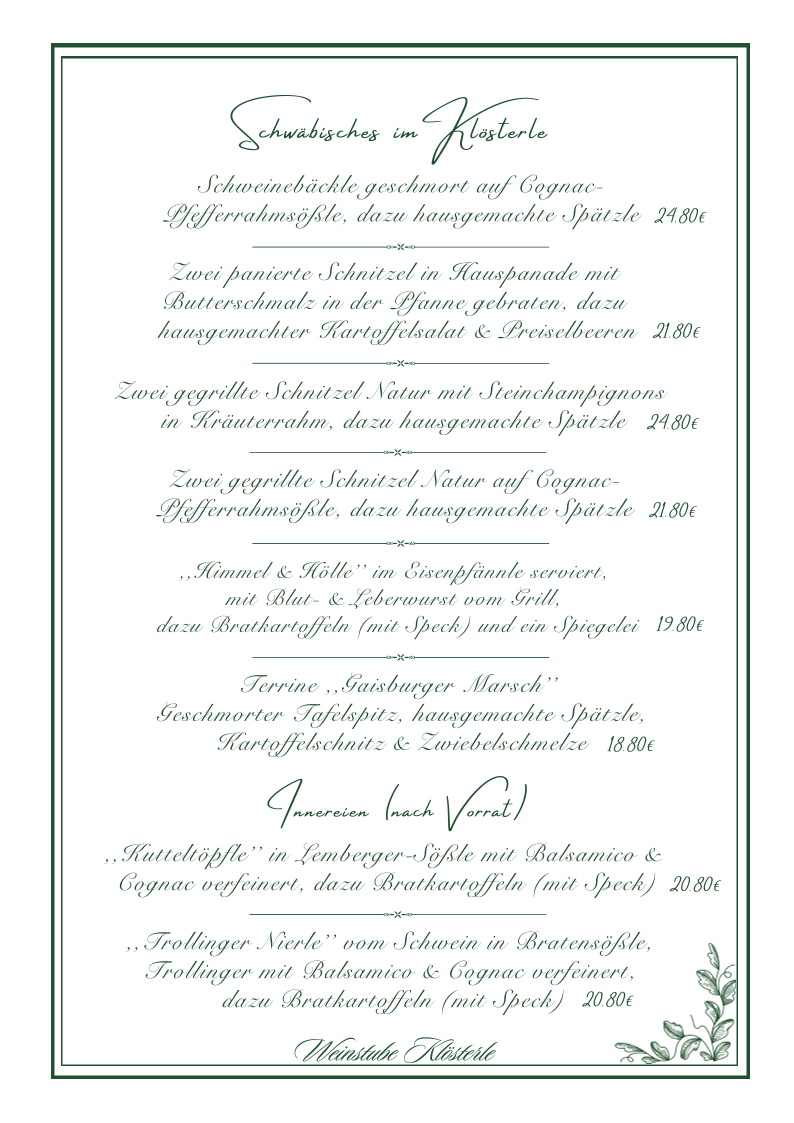 Schwäbisches im Klösterle
Schweinebäckle geschmort auf Cognac-
Pfefferrahmsößle, dazu hausgemachte Spätzle 24.80€
Zwei panierte Schnitzel in Hauspanade mit
Butterschmalz in der Pfanne gebraten, dazu
hausgemachter Kartoffelsalat & Preiselbeeren 21.80€
Zwei gegrillte Schnitzel Natur mit Steinchampignons
in Kräuterrahm, dazu hausgemachte Spätzle 24.80€
Zwei gegrillte Schnitzel Natur auf Cognac-
Pfefferrahmsößle, dazu hausgemachte Spätzle 21.80€
,,Himmel & Hölle’’ im Eisenpfännle serviert,
mit Blut- & Leberwurst vom Grill,
dazu Bratkartoffeln (mit Speck) und ein Spiegelei 19.80€
Terrine ,,Gaisburger Marsch’’
Geschmorter Tafelspitz, hausgemachte Spätzle,
Kartoffelschnitz & Zwiebelschmelze 18.80€
Innereien (nach Vorrat)
,,Kutteltöpfle’’ in Lemberger-Sößle mit Balsamico &
Cognac verfeinert, dazu Bratkartoffeln (mit Speck) 20.80€
,,Trollinger Nierle’’ vom Schwein in Bratensößle,
Trollinger mit Balsamico & Cognac verfeinert,
dazu Bratkartoffeln (mit Speck) 20.80€
Weinstube Klösterle